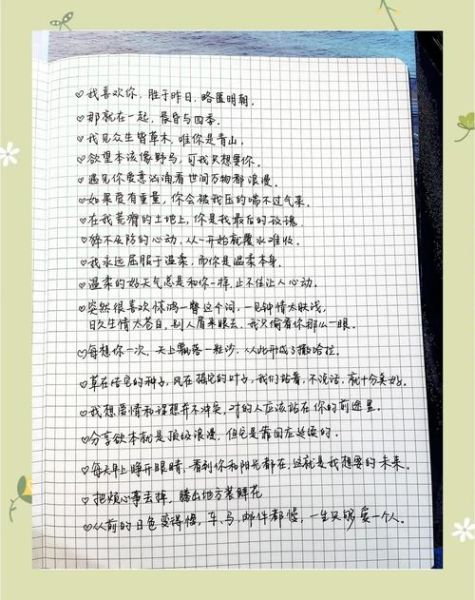 ♡我喜欢你,胜于昨日,略匮明朝。
♡那就在一起,晨昏与四季。
♡我见众生皆草木,唯你是青山。
♡欲望本该像野马,可我只想要你。
♡遇见你爱意汹涌看世间万物都浪漫。
♡如果爱有重量,你会被我压的喘不过气来。
♡在我荒瘠的土地上,你是我最后的玫瑰。
♡猝不及防的心动,从一开始就覆水难收。
♡我永远屈服于温柔,而你是温柔本身。
♡温柔的好天气总是和你一样,止不住让人心动。
♡突然很喜欢惊鸿一瞥这个词,一见钟情太肤浅,
日久生情太苍白,别人眉来眼去,我只偷看你那么一眼。
♡每想你一次,天上飘落一粒沙,从此形成了撒哈拉。
♡草在结它的种子,风在摇它的叶子,我们站着,不说话,就十分美好。
♡我想爱情和理想并不冲突,对的人应该站在你的前途里。
♡分享欲本就是顶级浪漫,但它是靠回应延续的。
♡每天早上睁开眼睛,看到你和阳光都在,这就是我想要的未来。
♡把烦心事丢掉,腾出地方装鲜花
♡从前的日色变得慢,车、马、邮件都慢,一生只够爱一个人。